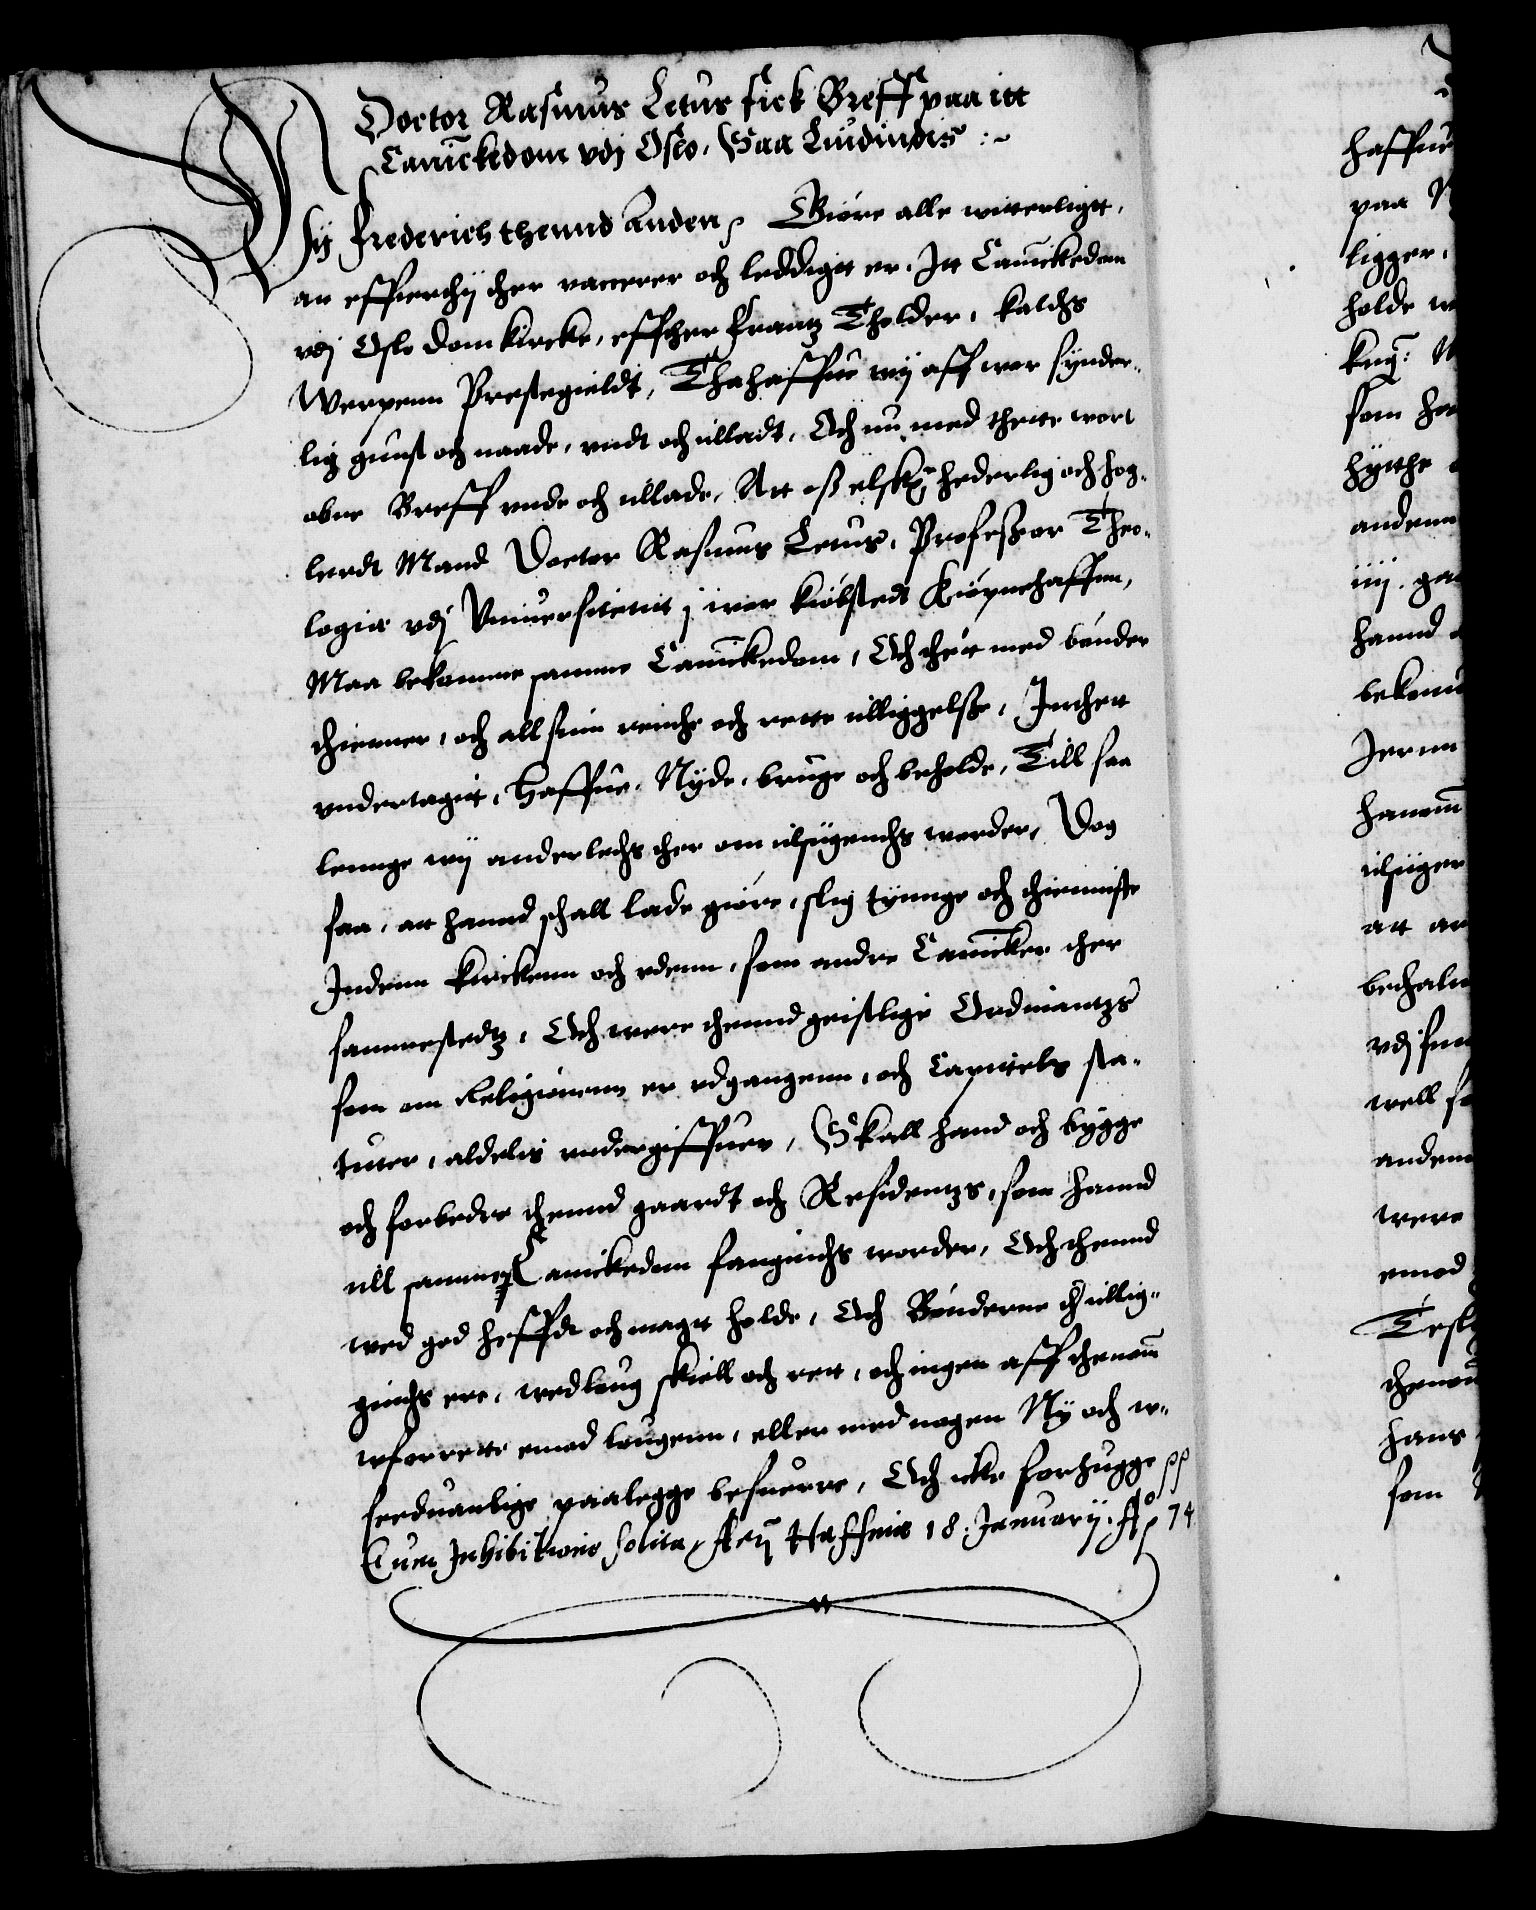 Doctor Rasmus Letus fick Breff paa itt
Canickedom vdj Oslo, Saa Liudindis :~
Vij Frederich thennd Anden Giøre alle witterligtt,
att effterthij ther vacerer och leddigtt er, Itt Canickedom
vdj Oslo domkircke, effther Frantz Tholder, kaldis
Werpenn Prestegieldt, Tha haffue wij aff wor synder-
lig gunst och naade, vndt och tilladt, Och nu med thette wort
obne Breff vnde och tillade, Att oss elskelig hederlig och høg-
lerdt Mand Doctor Rasmus Letus, Professor Theo-
logiæ vdj Vniuersitetet j wor kiøbstedt Kiøpnehaffnn,
Maa bekomme samme Canickedom, Och thet med bønder
thienner, och all sinn renthe och rette tilliggelsse, Inthet
vndertagitt, Haffue, Nyde, bruge och beholde, Till saa
lennge wij anderledis ther om tilsigenndis worder, Dog
saa, att hannd schall lade giøre, slig tynnge och thienniste
Indenn kirckenn och vdenn, som andre Canicker ther
sammestedtz, Och were thennd geistlige Ordinantzs
som om Religionenn er vdgangenn, och Capittels sta-
tuter, aldelis vndergiffuen, Skall hand och bygge
och forbedre thennd gaardt och Residentzs, som hannd
till samme Canickedom fangindis worder, Och thennd
wed god heffdt och magtt holde, Och Bønderne ther tillig-
gindis ere, wed loug skiell och rett, och ingen aff thenom
wforrette emod lougenn, eller med nogen Ny och w-
seeduanlige paalegge besuerre, Och icke forhugge pp
Cum Inhibitione solita, Act Haffniæ 18. January. Ao 74
haffue
paa
ligger,
holde
som
andenn
iiij.
hannd
hanom
att
well
were
emod
hans
som